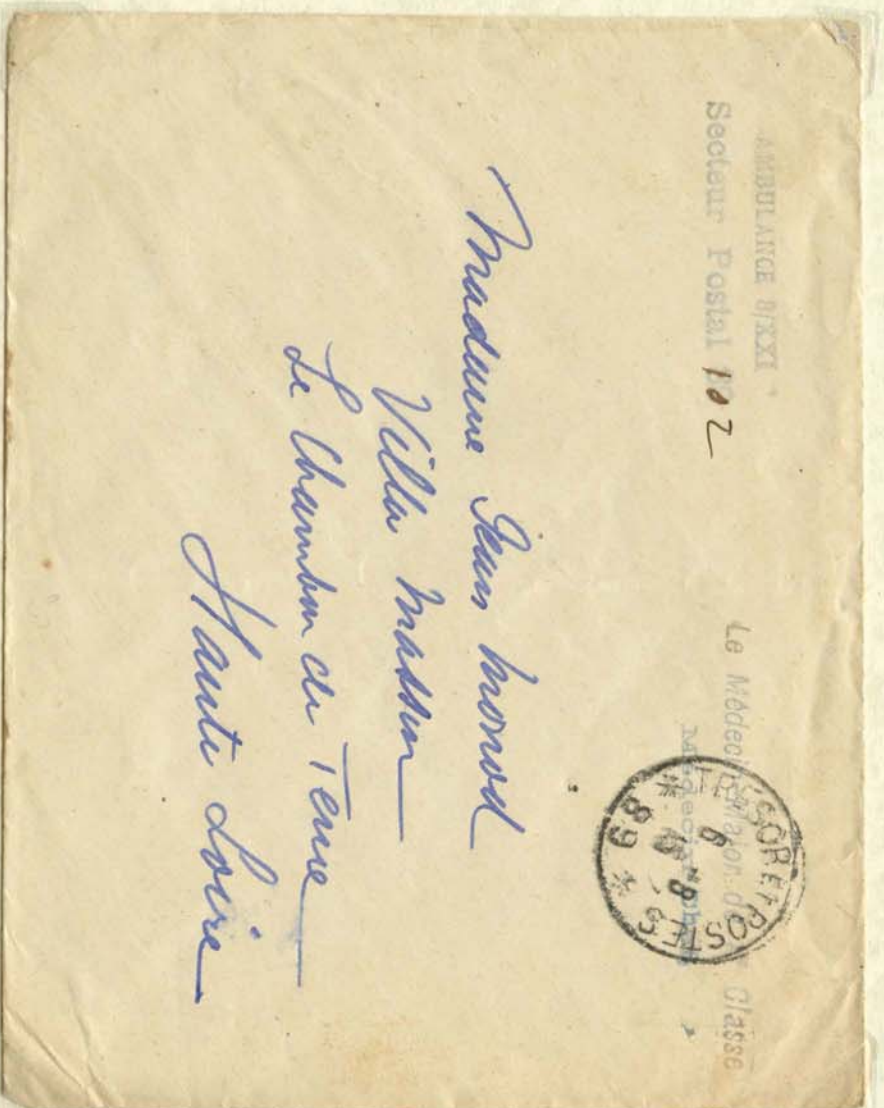 AMBULANCE 8/XXI
Secteur Postal 102
Le Médecin Major de Classe
Médecin
TRESOR ET POSTES
6
8
* 89 *
Madame Jean Monod
Villa Masson
Le Chambon de Tence
Haute Loire